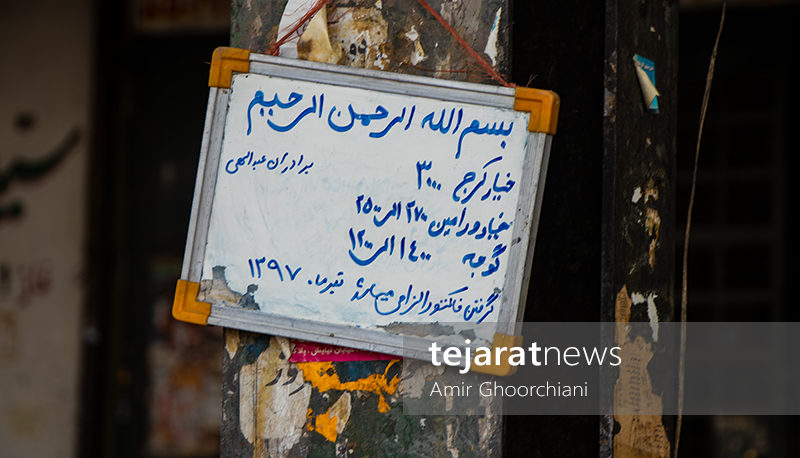 بسم الله الرحمن الرحیم
برادران عبدالهی
خیار کرج ۳۰۰۰
خیار ورامین ۲۷۰۰ الی ۲۵۰۰
گوجه ۱۴۰۰ الی ۱۲۰۰
گرفتن فاکتور الزامی میباشد تیرماه ۱۳۹۷
خیابان نیایش، پلاک
tejaratnews
Amir Ghoorchiani